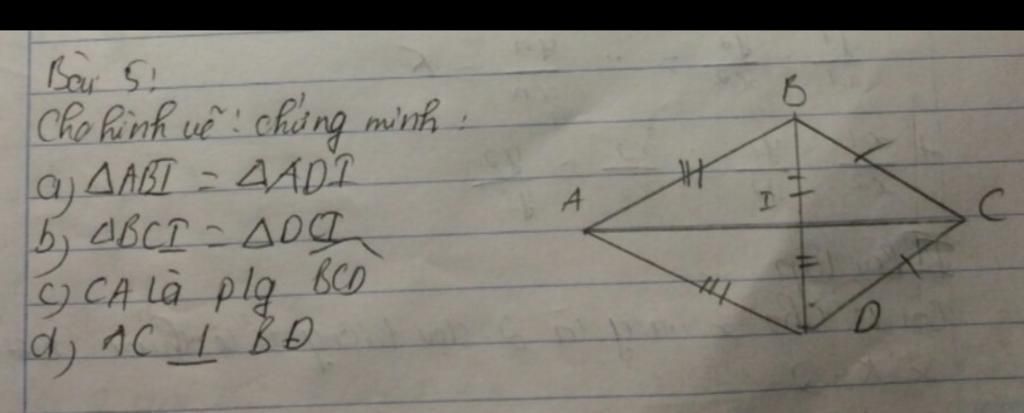 Bài 5:
Cho hình vẽ: chứng minh:
a) ΔABI = ΔADI
b) ΔBCI = ΔDCI
c) CA là plg BCD
d) AC ⊥ BD
B
A
I
C
D